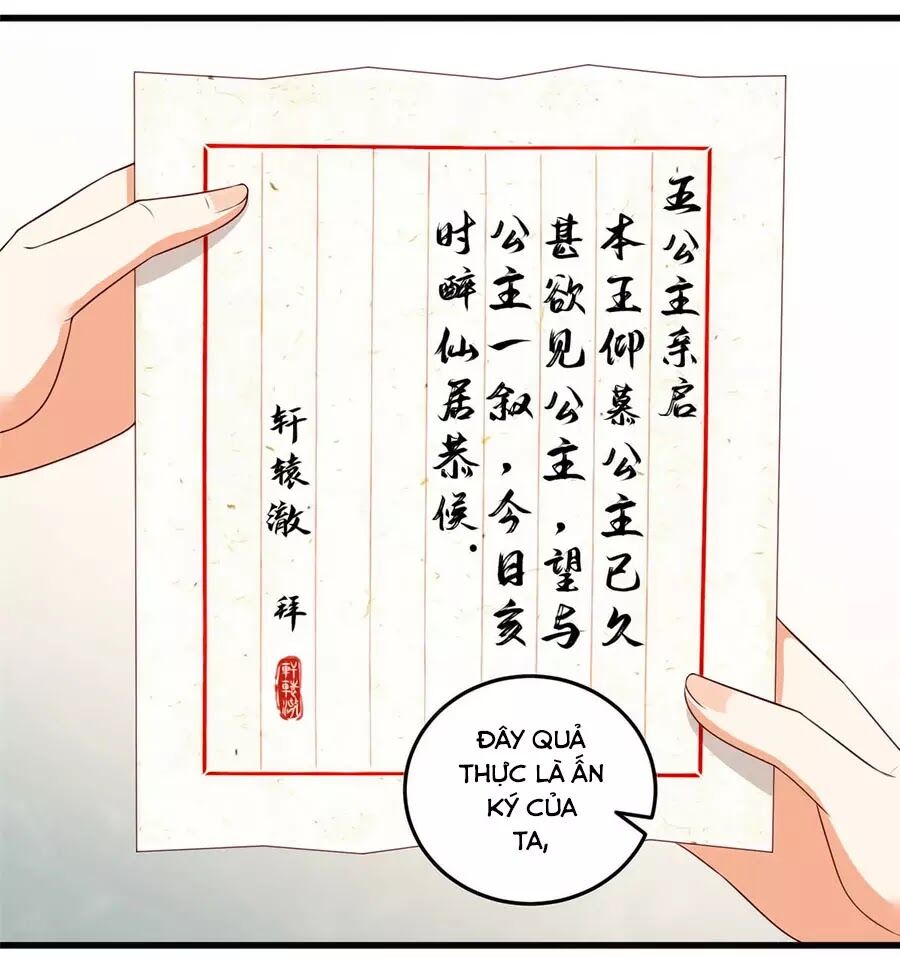 五公主亲启
本王仰慕公主已久
甚欲见公主，望与
公主一叙，今日亥
时醉仙居恭候.
轩辕澈 拜
軒轅澈
ĐÂY QUẢ
THỰC LÀ ẤN
KÝ CỦA
TA,